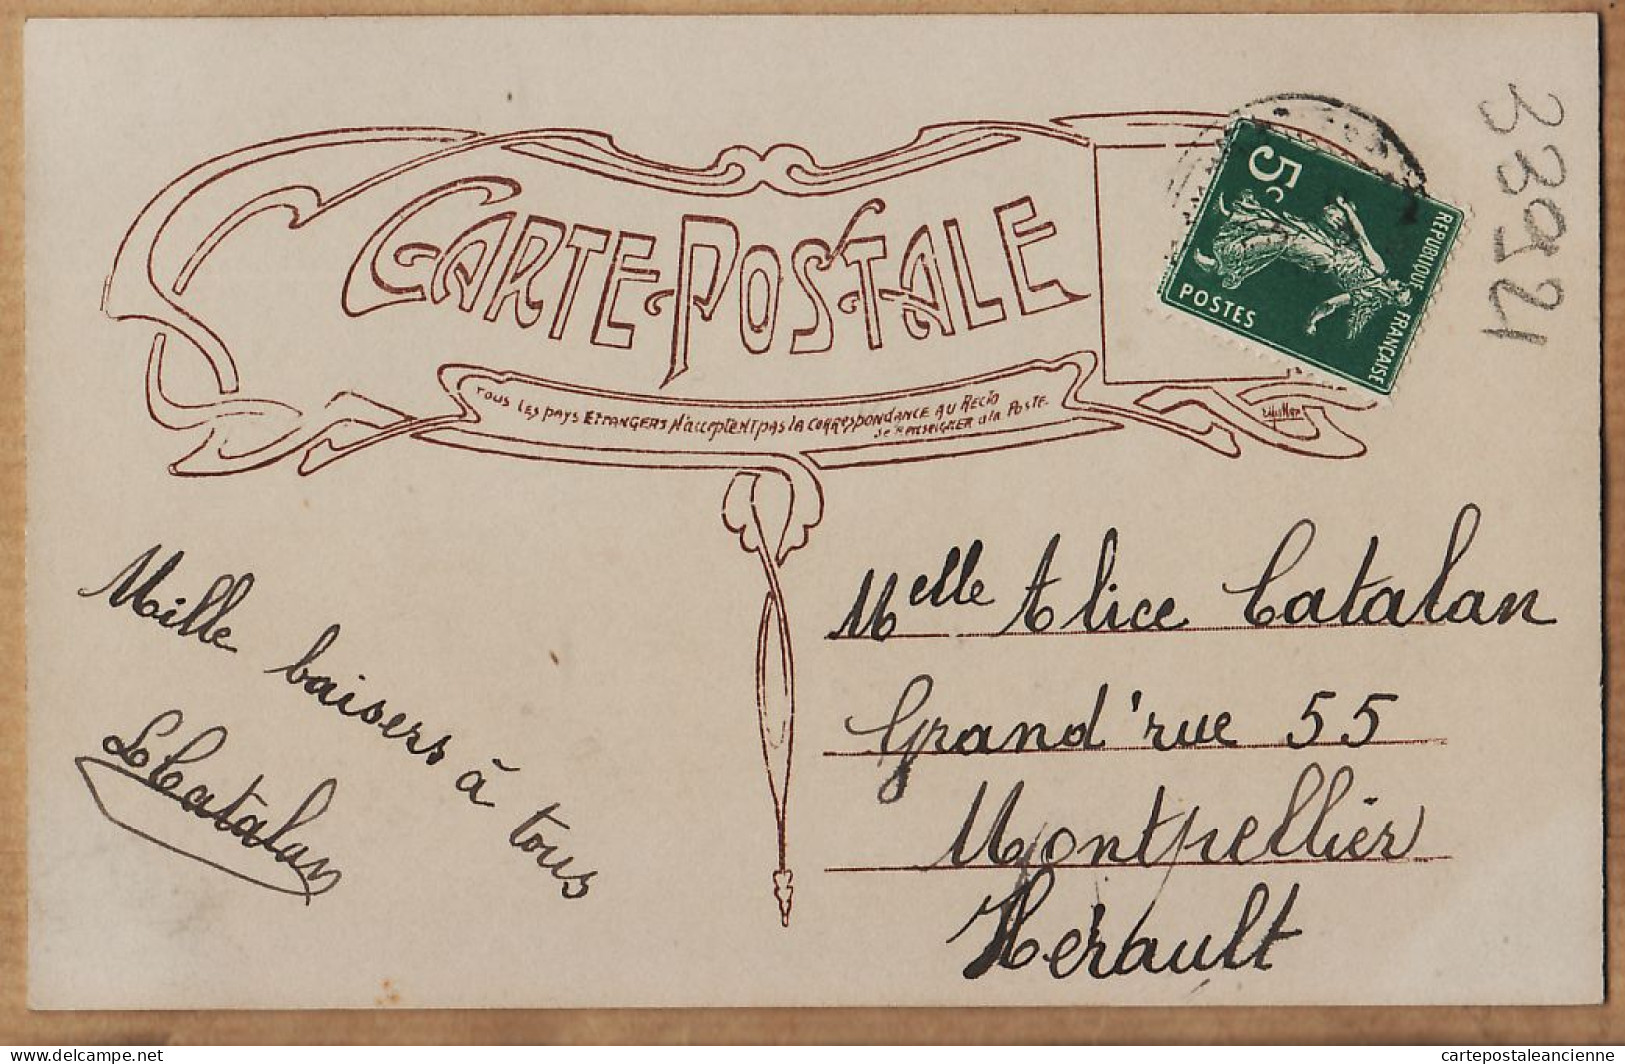 CARTE POSTALE
TOUS LES PAYS ETRANGERS N'acceptent pas la CORRESPONDANCE AU RECTO
se RENSEIGNER à la POSTE.
5c
POSTES
REPUBLIQUE FRANÇAISE
Mille baisers à tous
Catalan
Melle Alice Catalan
Grand'rue 55
Montpellier
Hérault
delcampe.net
cartepostaleancienne